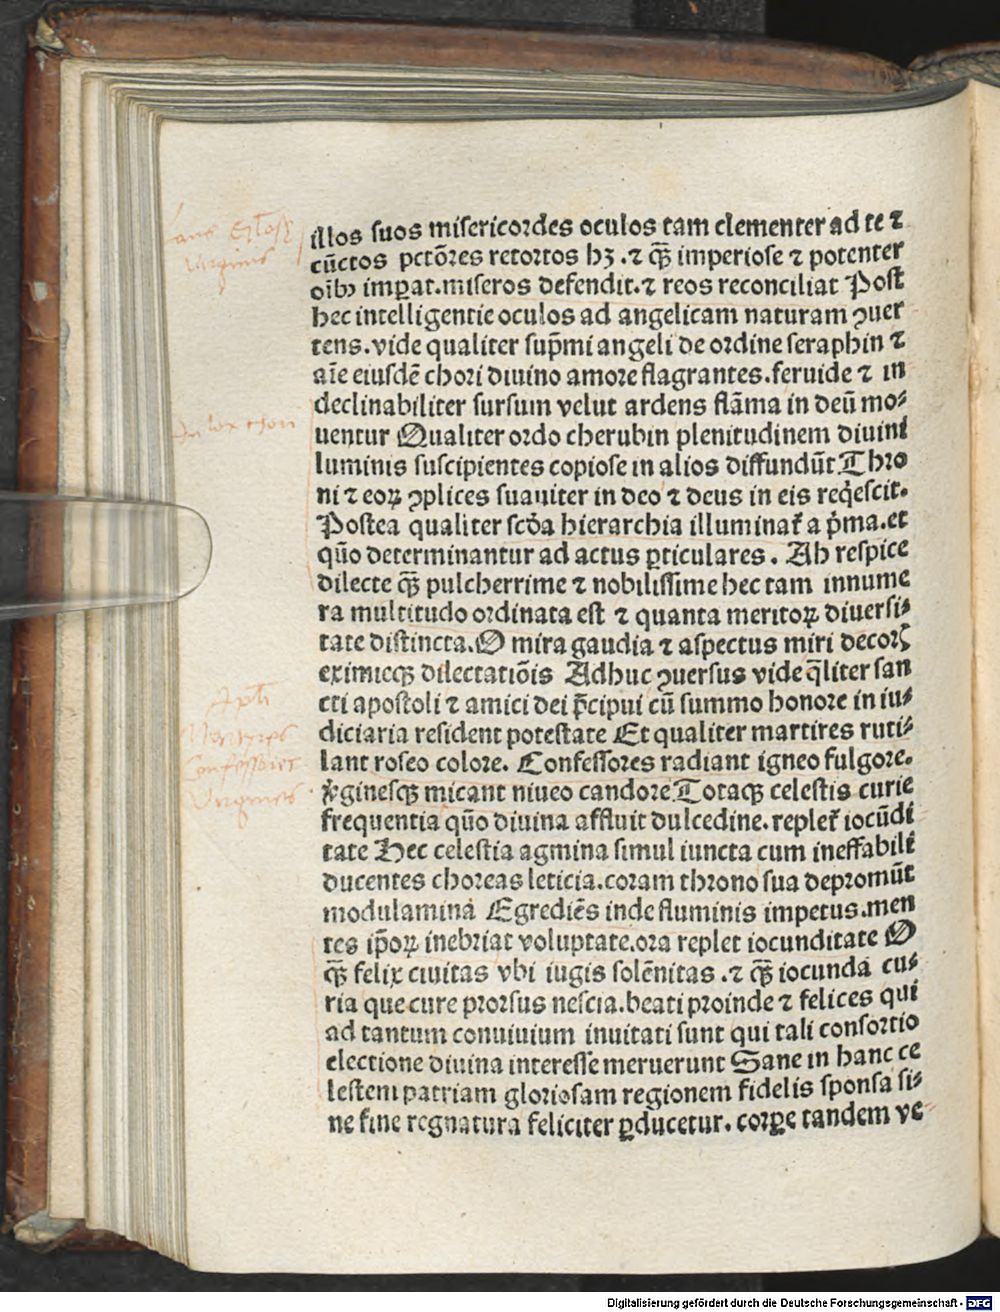 illos suos misericordes oculos tam clementer ad te ⁊
cūctos pctōres retortos hꝫ .⁊ qꝫ̄ imperiose ⁊ potenter
oībꝫ imꝑat.miseros defendit.⁊ reos reconciliat Post
hec intelligentie oculos ad angelicam naturam ꝯuer
tens.vide qualiter sup̄mi angeli de ordine seraphin ⁊
aīe eiusdē chori diuino amore flagrantes.feruide ⁊ in
declinabiliter sursum velut ardens flāma in deū mo⸗
uentur Qualiter ordo cherubin plenitudinem diuini
luminis suscipientes copiose in alios diffundūt Thro
ni ⁊ eoꝝ ꝯplices suauiter in deo ⁊ deus in eis req̇escit.
Postea qualiter scḋa hierarchia illuminat᷑ a p̍ma.et
quō determinantur ad actus ꝑticulares. Ah respice
dilecte qꝫ̄ pulcherrime ⁊ nobilissime hec tam innume
ra multitudo ordinata est ⁊ quanta meritoꝝ diuersi⸗
tate distincta.O mira gaudia ⁊ aspectus miri decorꝭ
eximieqꝫ dilectatiōis Adhuc ꝯuersus vide q̄liter san
cti apostoli ⁊ amici dei p̄cipui cū summo honore in iu⸗
diciaria resident potestate Et qualiter martires ruti⸗
lant roseo colore. Confessores radiant igneo fulgore.
v̓ginesqꝫ micant niueo candore Totaqꝫ celestis curie
frequentia quō diuina affluit dulcedine.replet᷑ iocūdi
tate Hec celestia agmina simul iuncta cum ineffabili
ducentes choreas leticia.coram throno sua depromūt
modulamina Egrediēs inde fluminis impetus.men
tes ip̄oꝝ inebriat voluptate.ora replet iocunditate O
qꝫ̄ felix ciuitas vbi iugis solēnitas .⁊ qꝫ̄ iocunda cu⸗
ria que cure prorsus nescia.beati proinde ⁊ felices qui
ad tantum conuiuium inuitati sunt qui tali consortio
electione diuina interesse meruerunt Sane in hanc ce
lestem patriam gloriosam regionem fidelis sponsa si⸗
ne fine regnatura feliciter ꝑducetur. corꝑe tandem ve
Virginis
Apli
Martyres
Confessores
Virgines
Digitalisierung gefördert durch die Deutsche Forschungsgemeinschaft - DFG